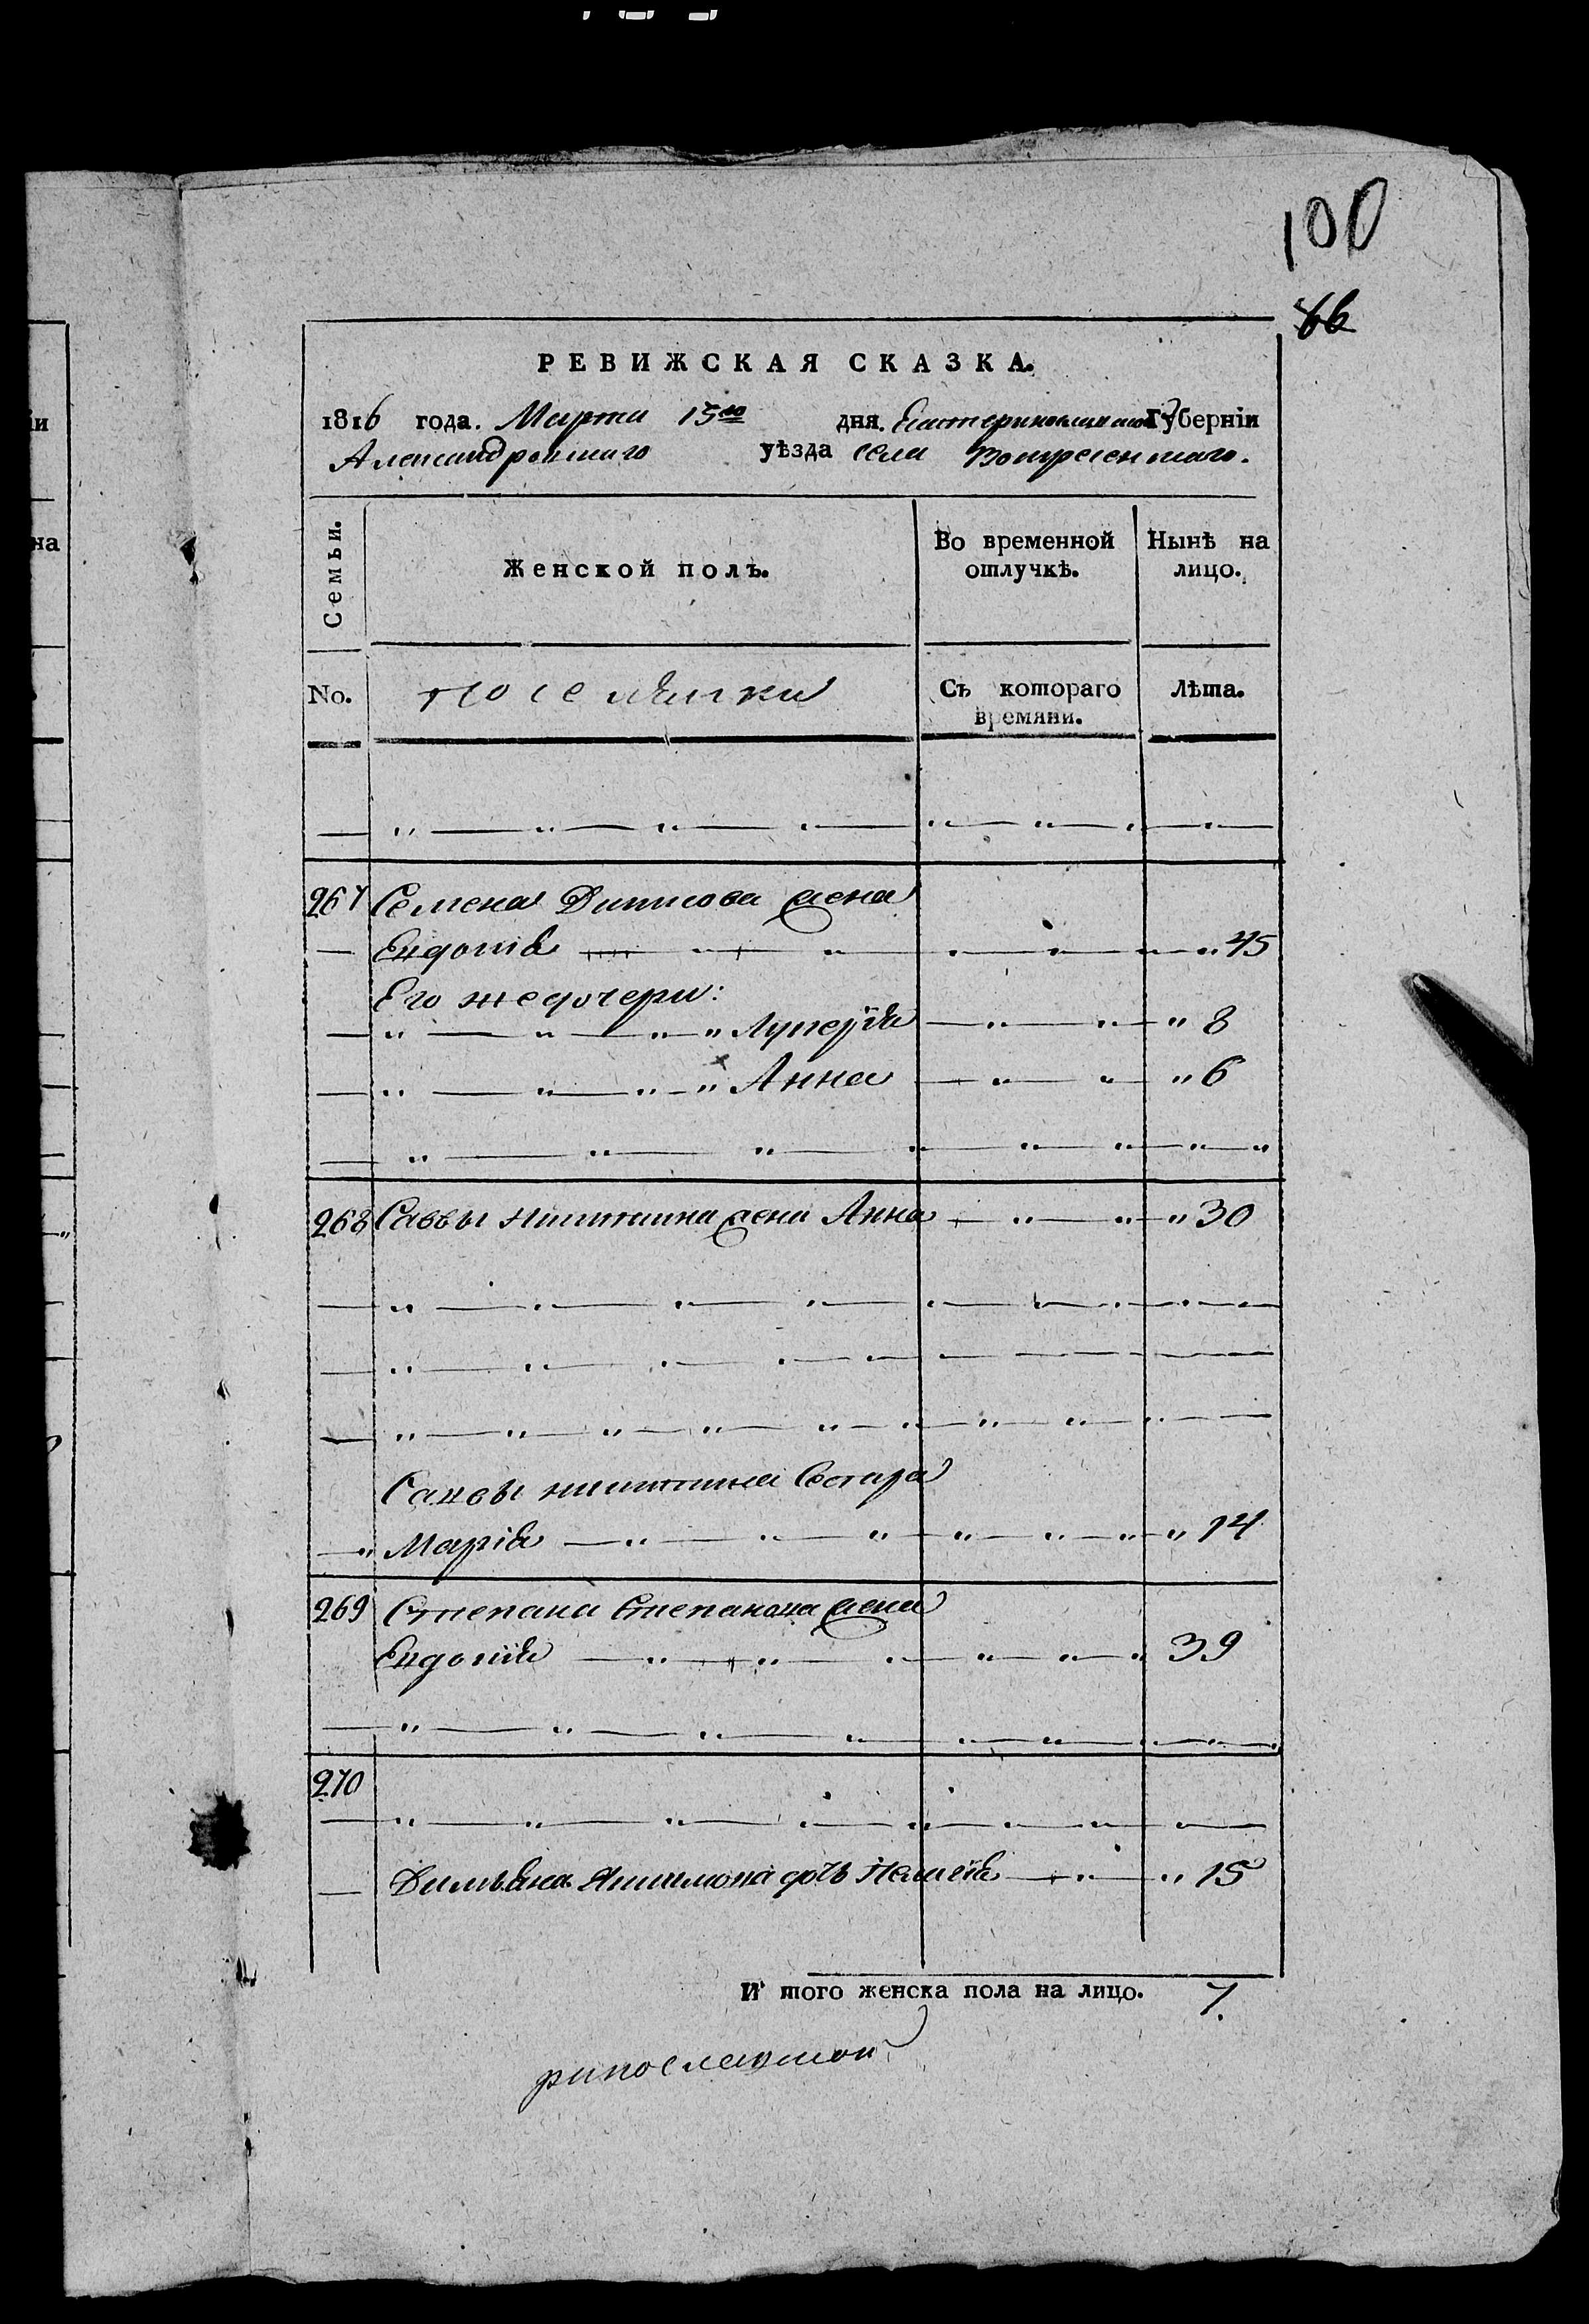 100
66
РЕВИЖСКАЯ СКАЗКА.
1816 года. Марта 15го дня. Екатеринославской Губерніи
Александровскаго уѣзда села Воскресенскаго.
Семьи.
Женской полъ.
Во временной отлучкѣ.
Нынѣ на лицо.
No.
Поселянки
Съ котораго времяни.
Лѣта.
267 Семена Динисова жена
Евдокія 45
Его же дочери:
Лукерія 8
Анна 6
268 Саввы Никитина жена Анна 30
Саввы никитина Сестра
Марія 14
269 Степана Степанова жена
Евдокія 39
270
Димьяна дочь 15
И того женска пола на лицо. 7.